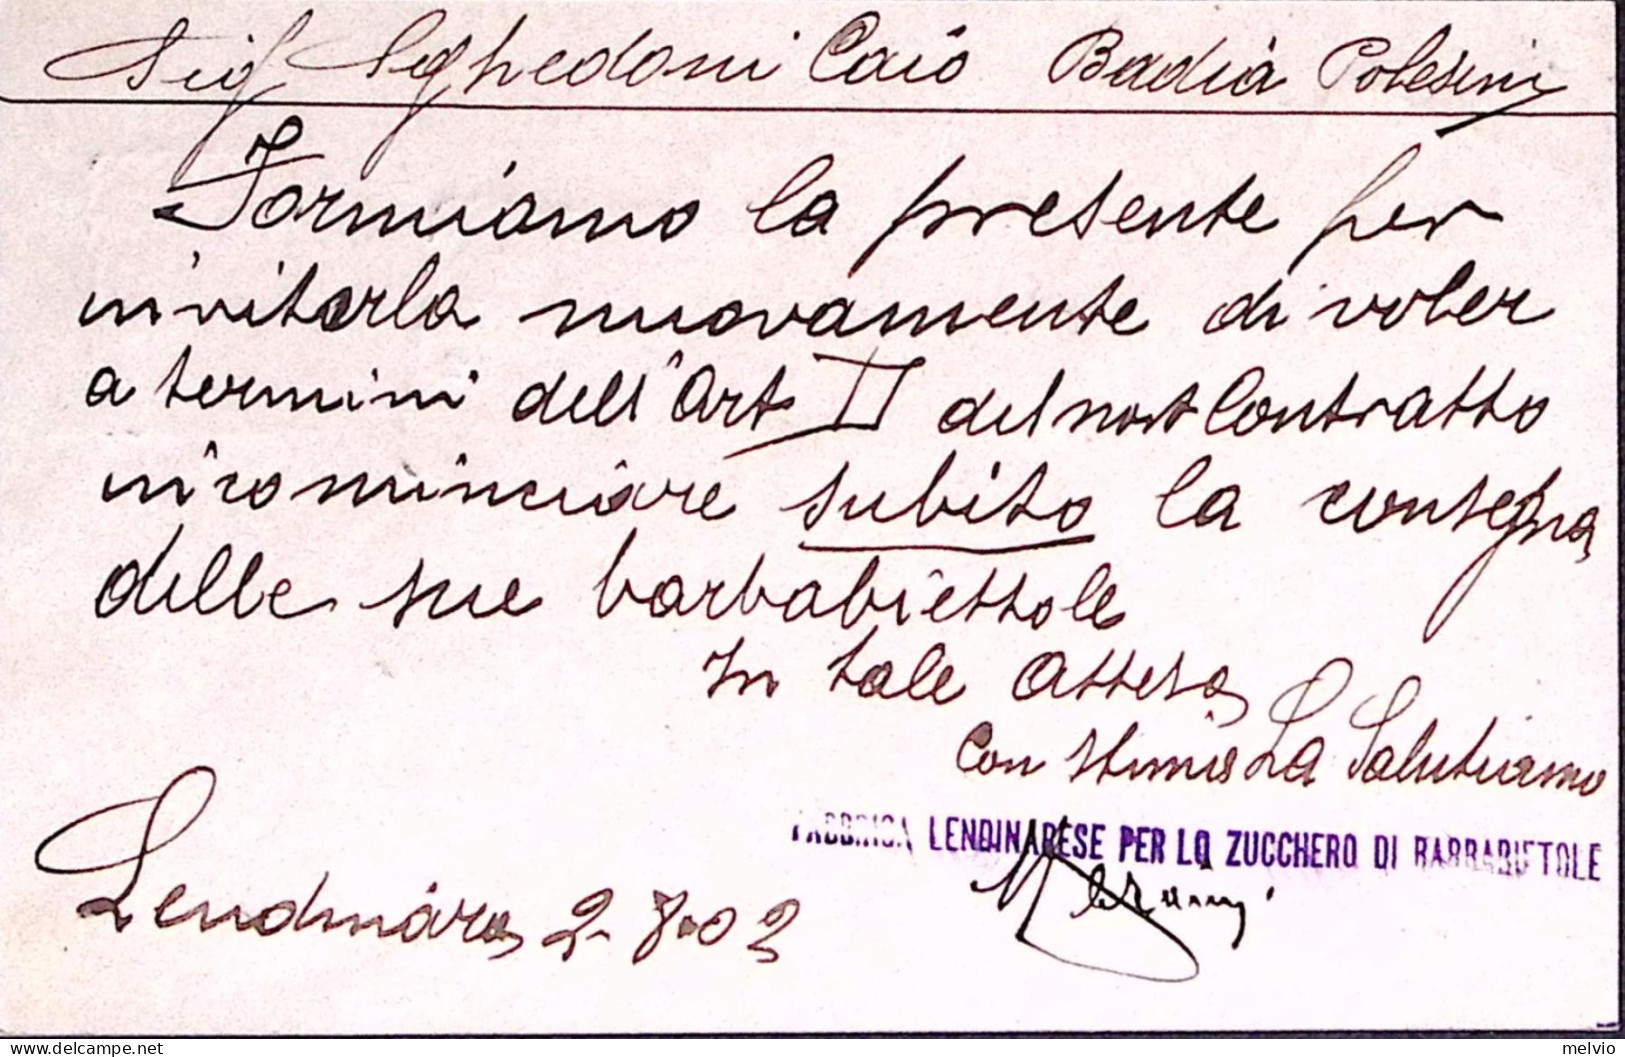 Sig Sghedoni Caio Badia Polesine
Formiamo la presente per
invitarla nuovamente di voler
a termini dell'Art II del nost Contratto
incominciare subito la consegna
delle sue barbabiettole
In tale attesa
Con stima La Salutiamo
FABBRICA LENDINARESE PER LO ZUCCHERO DI BARBABIETOLE
Lendinara 2-8-02
melvio